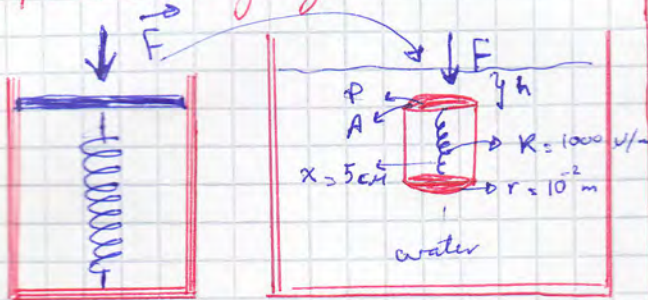 F
F
h
P
A
K = 1000 N/m
x = 5 см
r = 10⁻² m
water